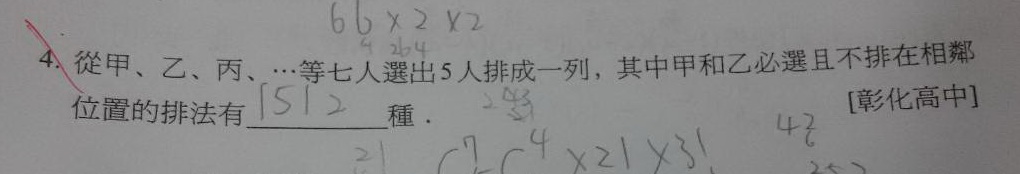 66×2×2
264
4. 從甲、乙、丙、…等七人選出5人排成一列，其中甲和乙必選且不排在相鄰
位置的排法有1512種．
[彰化高中]
21
C⁷ C⁴×21×3!